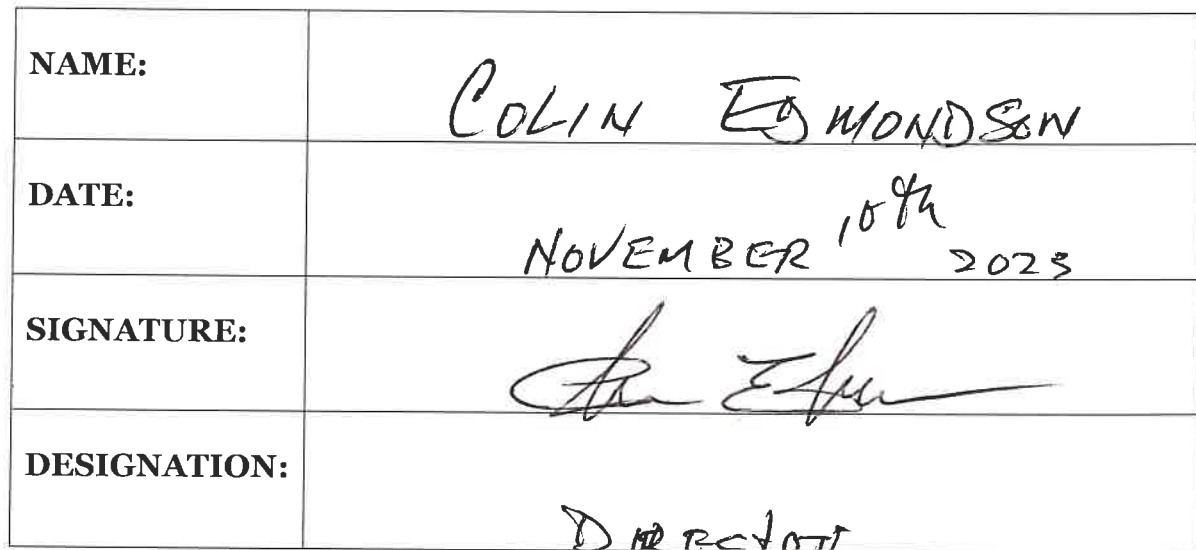 NAME: COLIN EDMONDSON
DATE: NOVEMBER 10th 2023
SIGNATURE:
DESIGNATION: DIRECTOR